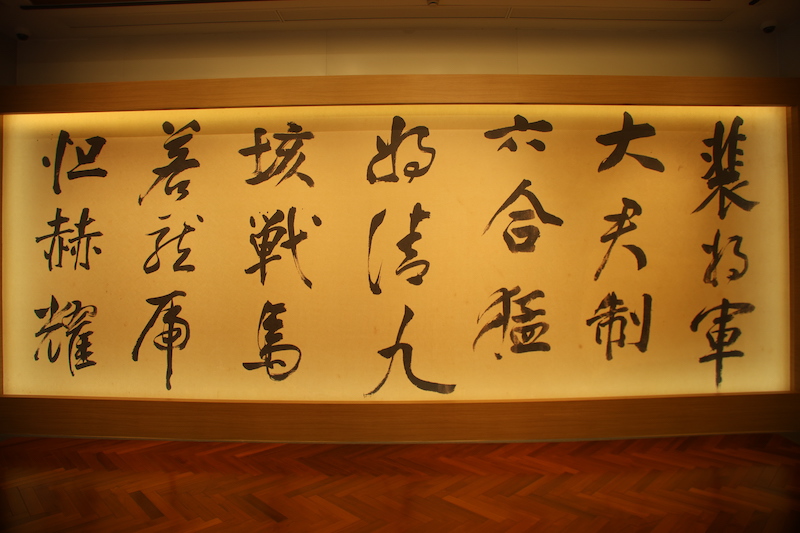 裴将軍
大君制
六合猛
将清九
垓戦馬
若龍虎
恒赫耀